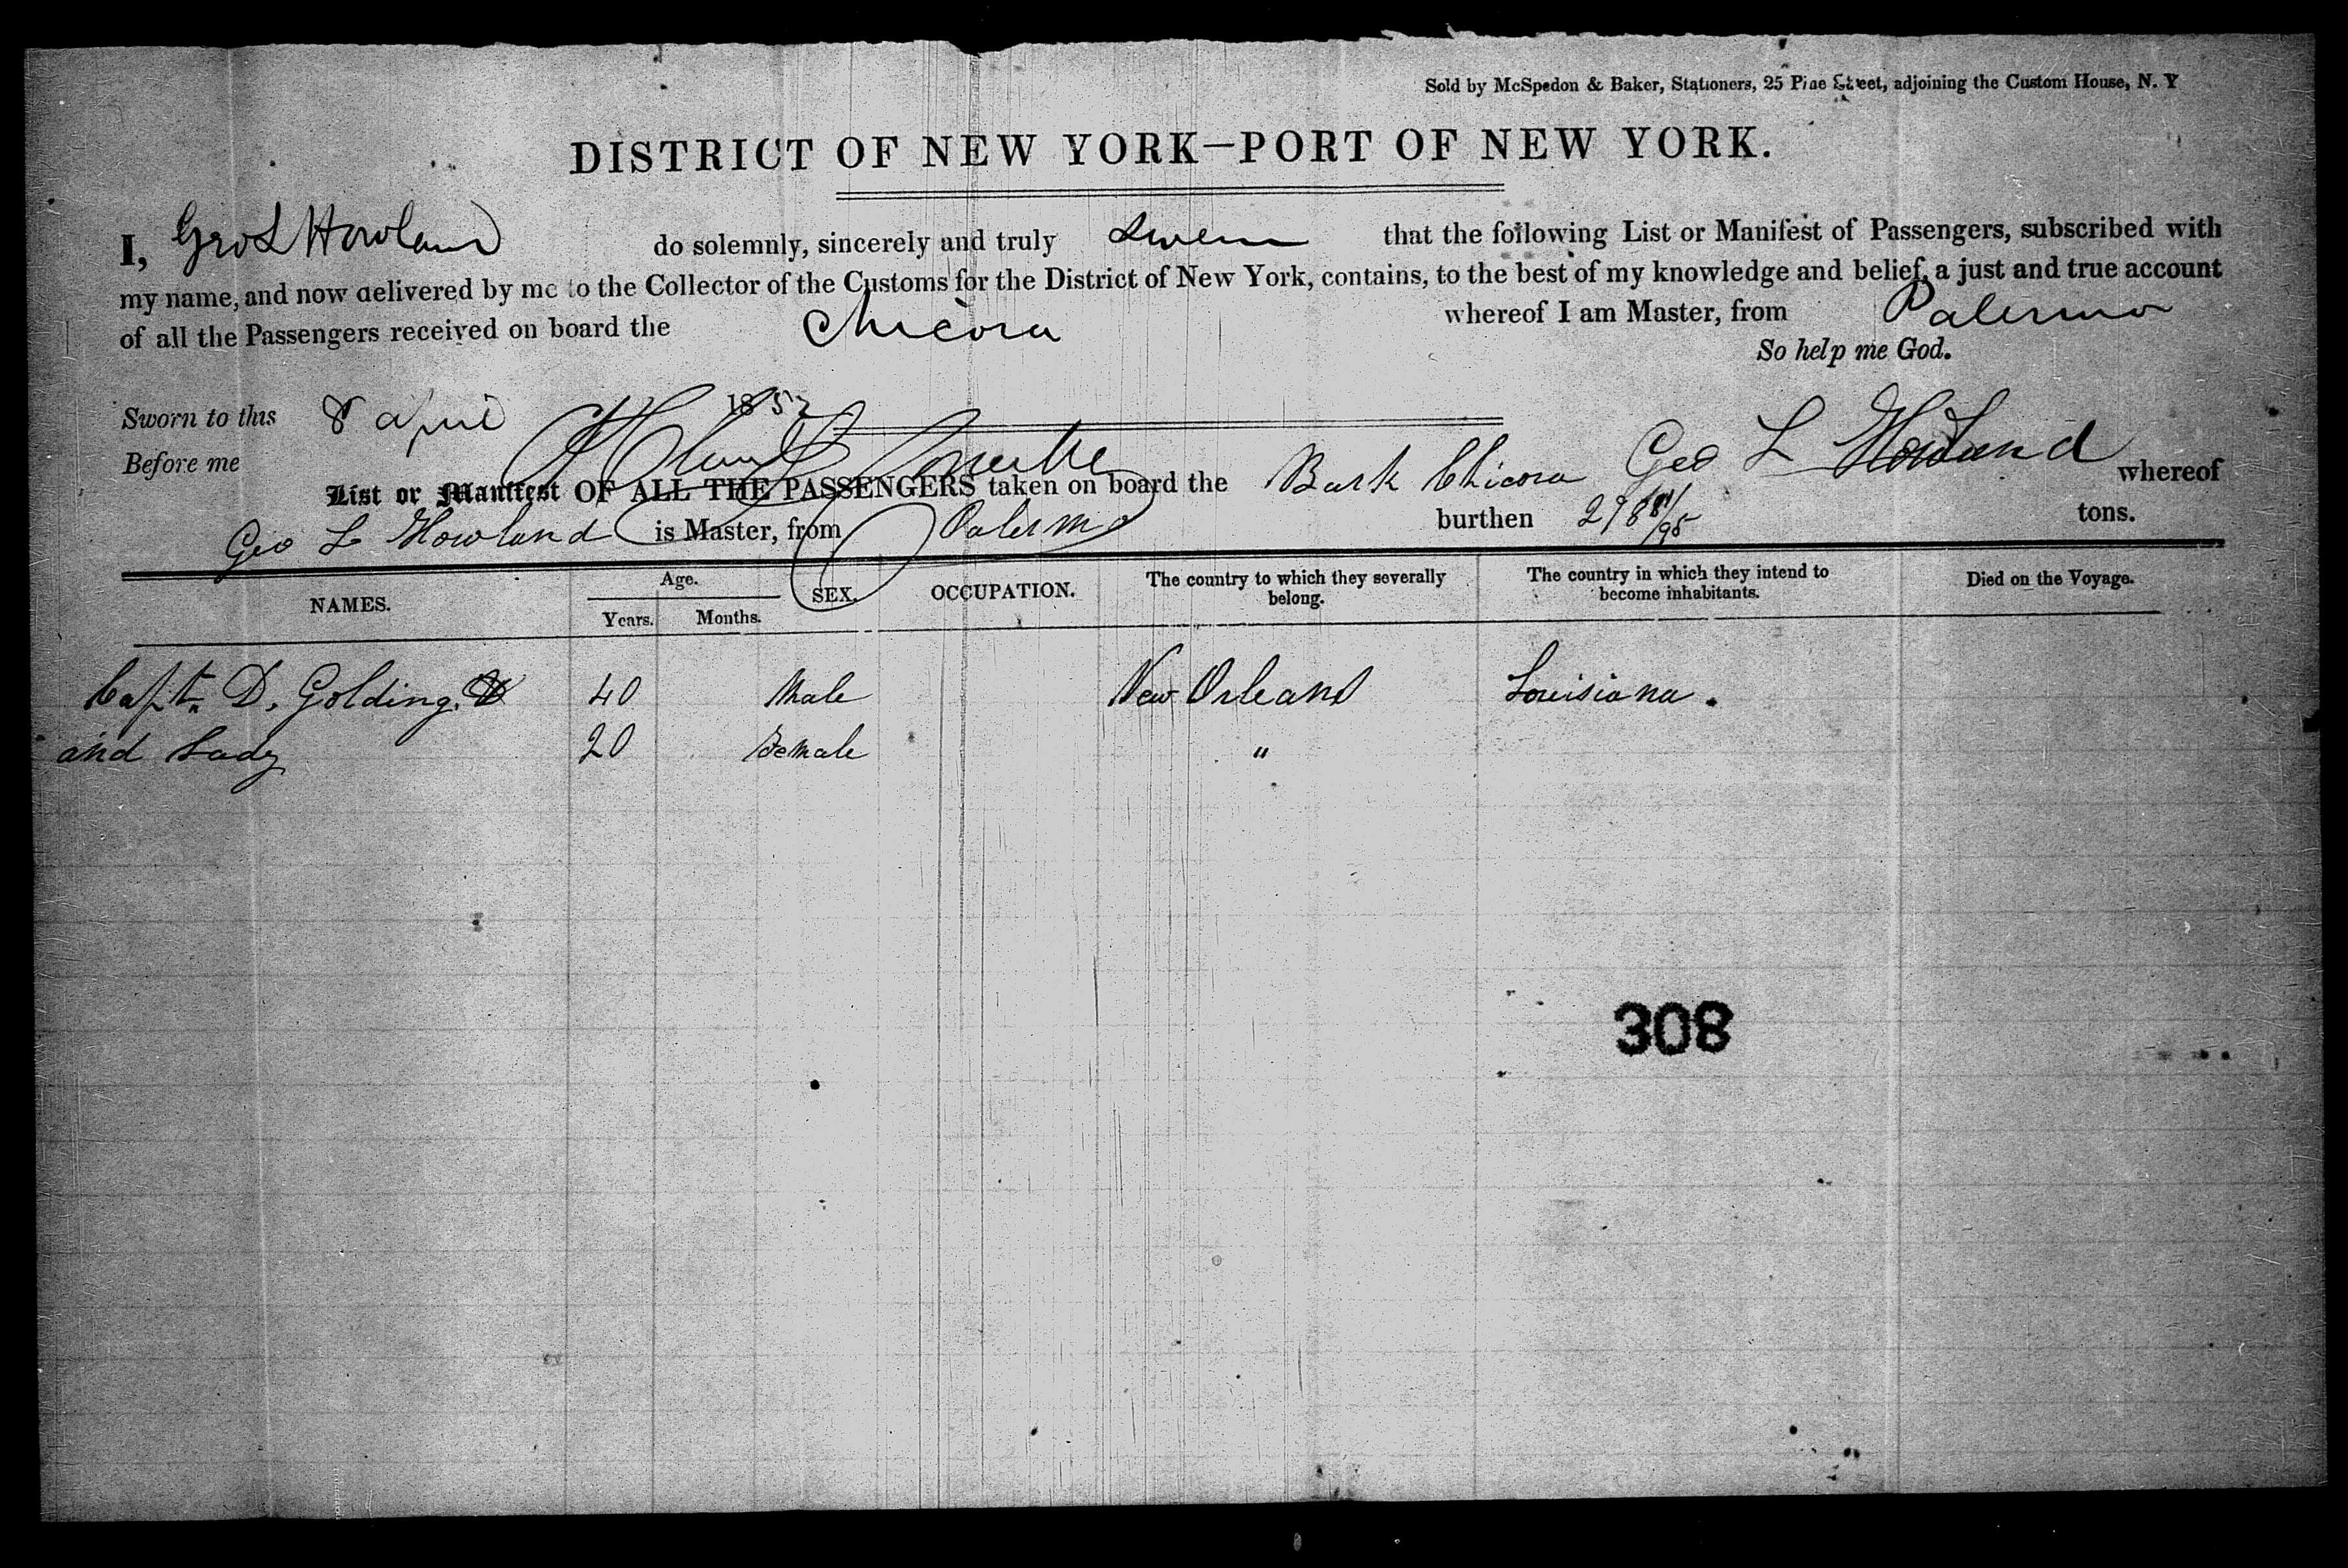 Sold by McSpedon & Baker, Stationers, 25 Pine Street, adjoining the Custom House, N. Y
DISTRICT OF NEW YORK—PORT OF NEW YORK.
I, Geo L Howland do solemnly, sincerely and truly swear that the following List or Manifest of Passengers, subscribed with
my name, and now delivered by me to the Collector of the Customs for the District of New York, contains, to the best of my knowledge and belief, a just and true account
of all the Passengers received on board the Chicora whereof I am Master, from Palermo
So help me God.
Sworn to this 8 April 1852
Before me Geo L Howland
List or Manifest OF ALL THE PASSENGERS taken on board the Bark Chicora whereof
Geo L Howland is Master, from Palermo burthen 298 81/95 tons.
NAMES. Age. Years. Months. SEX. OCCUPATION. The country to which they severally belong. The country in which they intend to become inhabitants. Died on the Voyage.
Capt. D. Golding. 40 Male New Orleans Louisiana.
and Lady 20 Female "
308